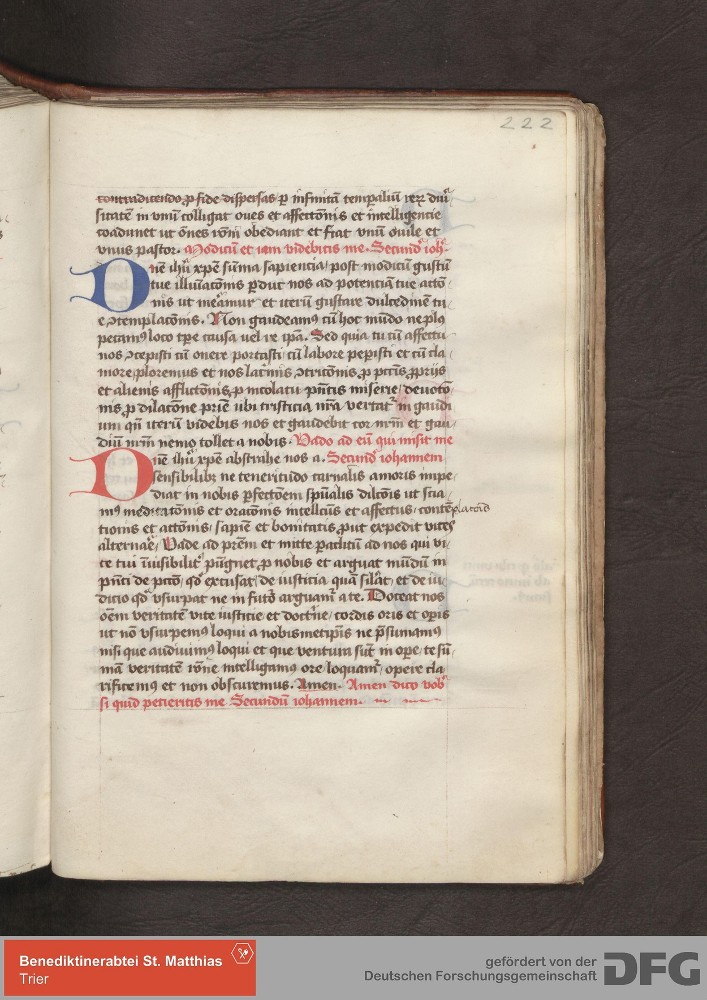 222
contradicendo ꝓ fide dispersas ꝑ infinitā temꝑaliū reꝝ diu͛
sitatē in vnū colligat oues et affectōnis et intelligencie
coadunet ut ōnes rōni obediant et fiat vnū ouile et
vnus pastor. Modicū et iam videbitis me. Secund͛ ioh͛
Dne ihū xp̄e sūma sapiencia/ post modicū gustū
tue illuīatōnis ꝑdut nos ad potenciā tue actō
nis ut meamur et iterū gustare dulcedinem tu
e ꝯtemplatōnis. Non gaudeamꝰ cū hoc mūdo ne
petamꝰ loco tp̄e causa vel re ip̄a. Sed quia tu cū affectu
nos ꝯcepisti cū onere portasti cū labore peperisti et cū cla
more ploremus et nos lac͛mis ꝯtricōnis ꝓ pctīs ꝓprijs
et alienis afflictōnis ꝓ incolatu pn̄tis miserie/ deuotō
nis ꝓ dilacōne prīe ubi tristicia nr̄a vertat͛ in gaudi
um qn̄ iterū videbis nos et gaudebit cor nr̄m et gau
diū nr̄m nemo tollet a nobis. Vado ad eū qui misit me
Dne ihū xp̄e abstrahe nos a. Secund͛ iohannem
sensibilibꝫ ne teneritudo carnalis amoris impe
diat in nobis ꝑfectōem spūalis dilcōis ut scia
mꝰ meditatōnis et oratōnis intellcūs et affectus/ contēplatōis
tionis et actōnis/ sapiē et bonitatis ꝓut expedit vices
alternare/ Vade ad prēm et mitte paraclitū ad nos qui vi
ce tui īuisibilit͛ pūgnet ꝓ nobis et arguat mūdū in
pn̄ti de pctō/ qd͛ excusat/ de iusticia quā silat/ et de iu
dicio qd͛ vsurpat ne in futō arguam͛ a te. Doceat nos
oēm veritatē vite iusticie et doctrīe/ cordis oris et oꝑis
ut nō vsurpemꝰ loqui a nobismetip̄is ne p̄sumamus
nisi que audiuimꝰ loqui et que ventura sūt in oꝑe/ te sū
mā veritatem rōne intelligamus ore/ loquam͛/ opere cla
rificemꝰ et non obscuremus. Amen. Amen dico vob͛
si quid petieritis me Secundū iohannem.
Benediktinerabtei St. Matthias
Trier
gefördert von der
Deutschen Forschungsgemeinschaft
DFG